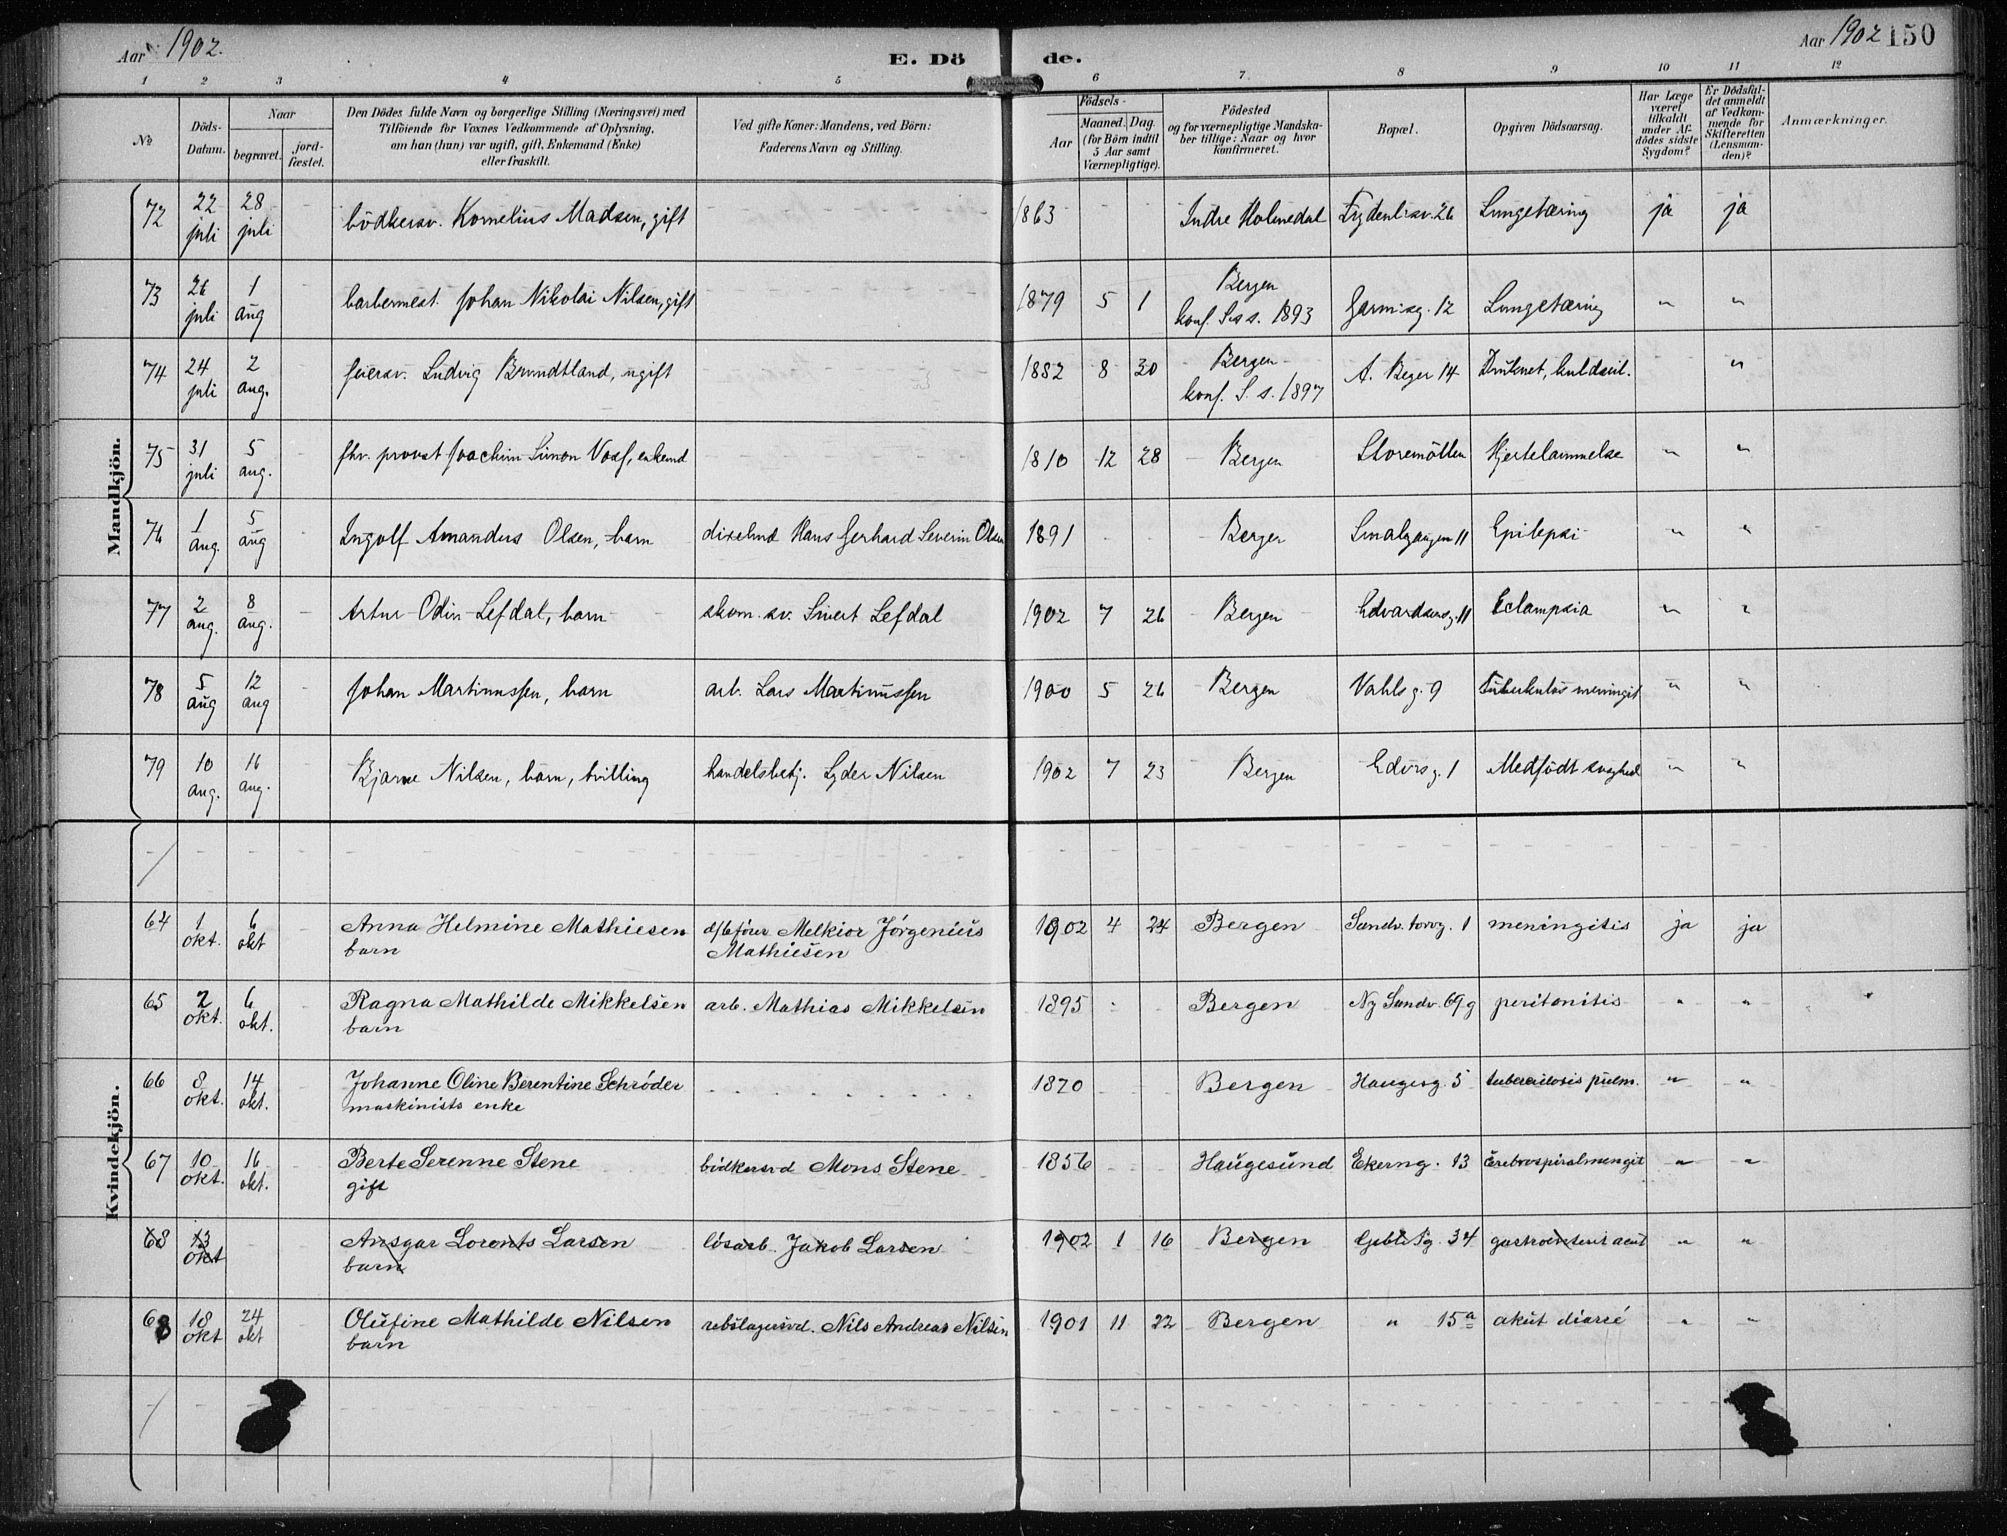 Aar 1902.
E. Dö de.
Aar 1902 150
1 2 3 4 5 6 7 8 9 10 11 12
No
Döds-Datum.
Naar
begravet.
jord-fæstet.
Den Dödes fulde Navn og borgerlige Stilling (Næringsvei) med
Tilföiende for Voxnes Vedkommende af Oplysning,
om han (hun) var ugift, gift, Enkemand (Enke)
eller fraskilt.
Ved gifte Koner: Mandens, ved Börn:
Faderens Navn og Stilling.
Födsels-
Aar
Maaned. Dag.
(for Börn indtil
5 Aar samt
Værnepligtige).
Födested
og for værnepligtige Mandska-
ber tillige: Naar og hvor
konfirmeret.
Bopæl.
Opgiven Dödsaarsag.
Har Læge
været
tilkaldt
under Af-
dödes sidste
Sygdom?
Er Dödsfal-
det anmeldt
af Vedkom-
mende for
Skifteretten
(Lensman-
den)?
Anmærkninger.
Mandkjön.
72 22 juli 28 juli bödkersv. Kornelius Madsen, gift 1863 Indre Holmedal 26 Lungetæring ja ja
73 26 juli 1 aug barbermest. Johan Nikolai Nilsen, gift 1879 5 1 Bergen konf. 1893 12 Lungetæring " "
74 24 juli 2 aug. feiersv. Ludvig Brundtland, ugift 1882 8 30 Bergen konf. S. s. 1897 A. Beyer 14 Druknet, "
75 31 juli 5 aug. fhv. provst Joachim Simon Vosf, enkemd 1810 12 28 Bergen Storemöllen Hjertelammelse " "
76 1 aug. 5 aug Ingolf Amandus Olsen, barn Hans Gerhard Severin Olsen 1891 Bergen Smalgangen 11 Epilepsi " "
77 2 aug. 8 aug. Artur Odin Lefdal, barn skom. sv. Sivert Lefdal 1902 7 26 Bergen Edvardsensg. 11 Eclampsia " "
78 5 aug 12 aug Johan Martinussen, barn arb. Lars Martinussen 1900 5 26 Bergen Vahls g. 9 Tuberkulös meningit " "
79 10 aug. 16 aug. Bjarne Nilsen, barn, tvilling handelsbetj. Lyder Nilsen 1902 7 23 Bergen 1 Medfödt svaghed " "
Kvindekjön.
64 1 okt. 6 okt Anna Helmine Mathiesen barn Melkior Jörgenius Mathiesen 1902 4 24 Bergen Sandv. torvg. 1 meningitis ja ja
65 2 okt. 6 okt. Ragna Mathilde Mikkelsen barn arb. Mathias Mikkelsen 1895 Bergen Ny Sandv. 69 g peritonitis " "
66 8 okt. 14 okt. Johanne Oline Berentine Schröder maskinists enke 1870 Bergen Haugesg. 5 tuberculosis pulm. " "
67 10 okt. 16 okt. Berte Serenne Stene gift bödkersvd Mons Stene 1856 Haugesund Ekerng. 13 Cerebrospinalmengit " "
68 13 okt Ansgar Lorents Larsen barn lösarb. Jakob Larsen 1902 1 16 Bergen 34 gastroenterit acut " "
68 18 okt 24 okt Olufine Mathilde Nilsen barn rebslagersvd. Nils Andreas Nilsen 1901 11 22 Bergen " 15 a akut diarré " "